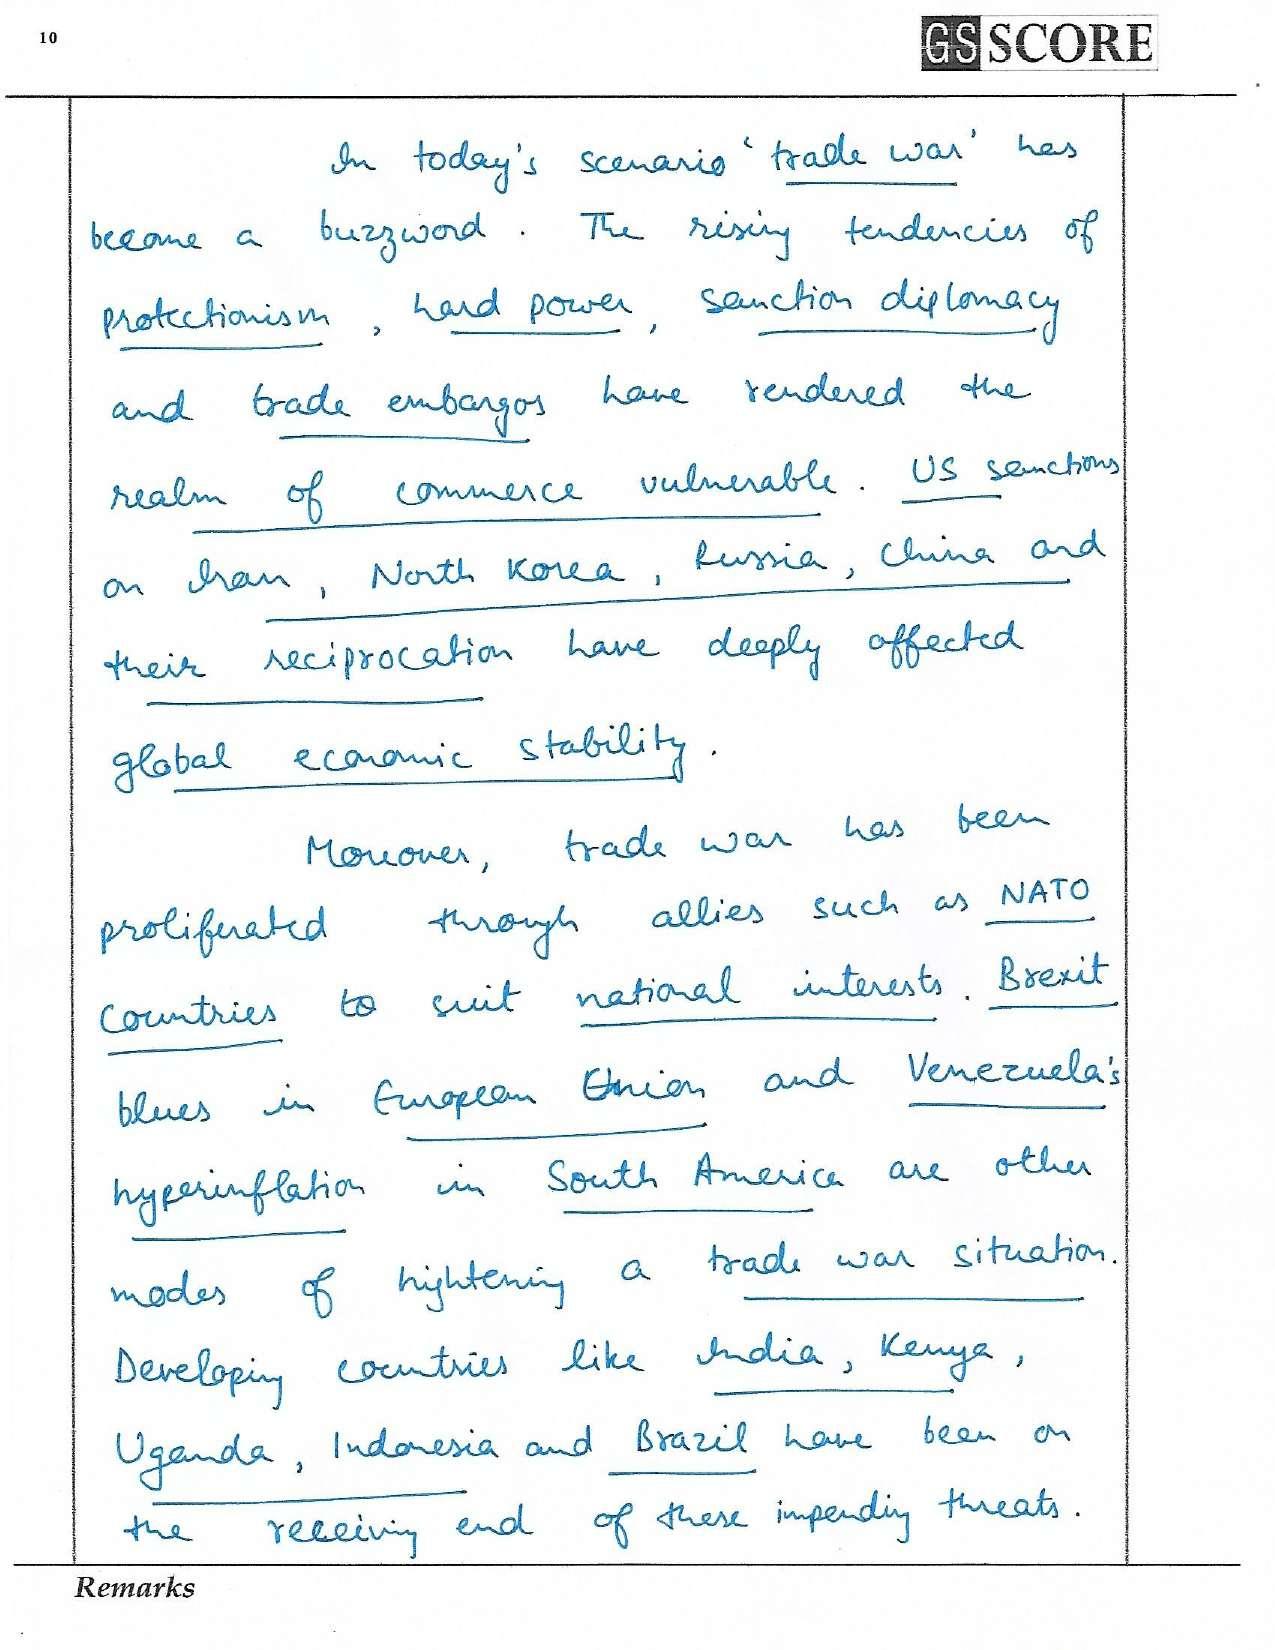 10
GS SCORE
In today's scenario 'trade war' has
become a buzzword. The rising tendencies of
protectionism, hard power, sanction diplomacy
and trade embargos have rendered the
realm of commerce vulnerable. US sanctions
on Iran, North Korea, Russia, China and
their reciprocation have deeply affected
global economic stability.
Moreover, trade war has been
proliferated through allies such as NATO
countries to suit national interests. Brexit
blues in European Union and Venezuela's
hyperinflation in South America are other
modes of hightening a trade war situation.
Developing countries like India, Kenya,
Uganda, Indonesia and Brazil have been on
the receiving end of these impending threats.
Remarks